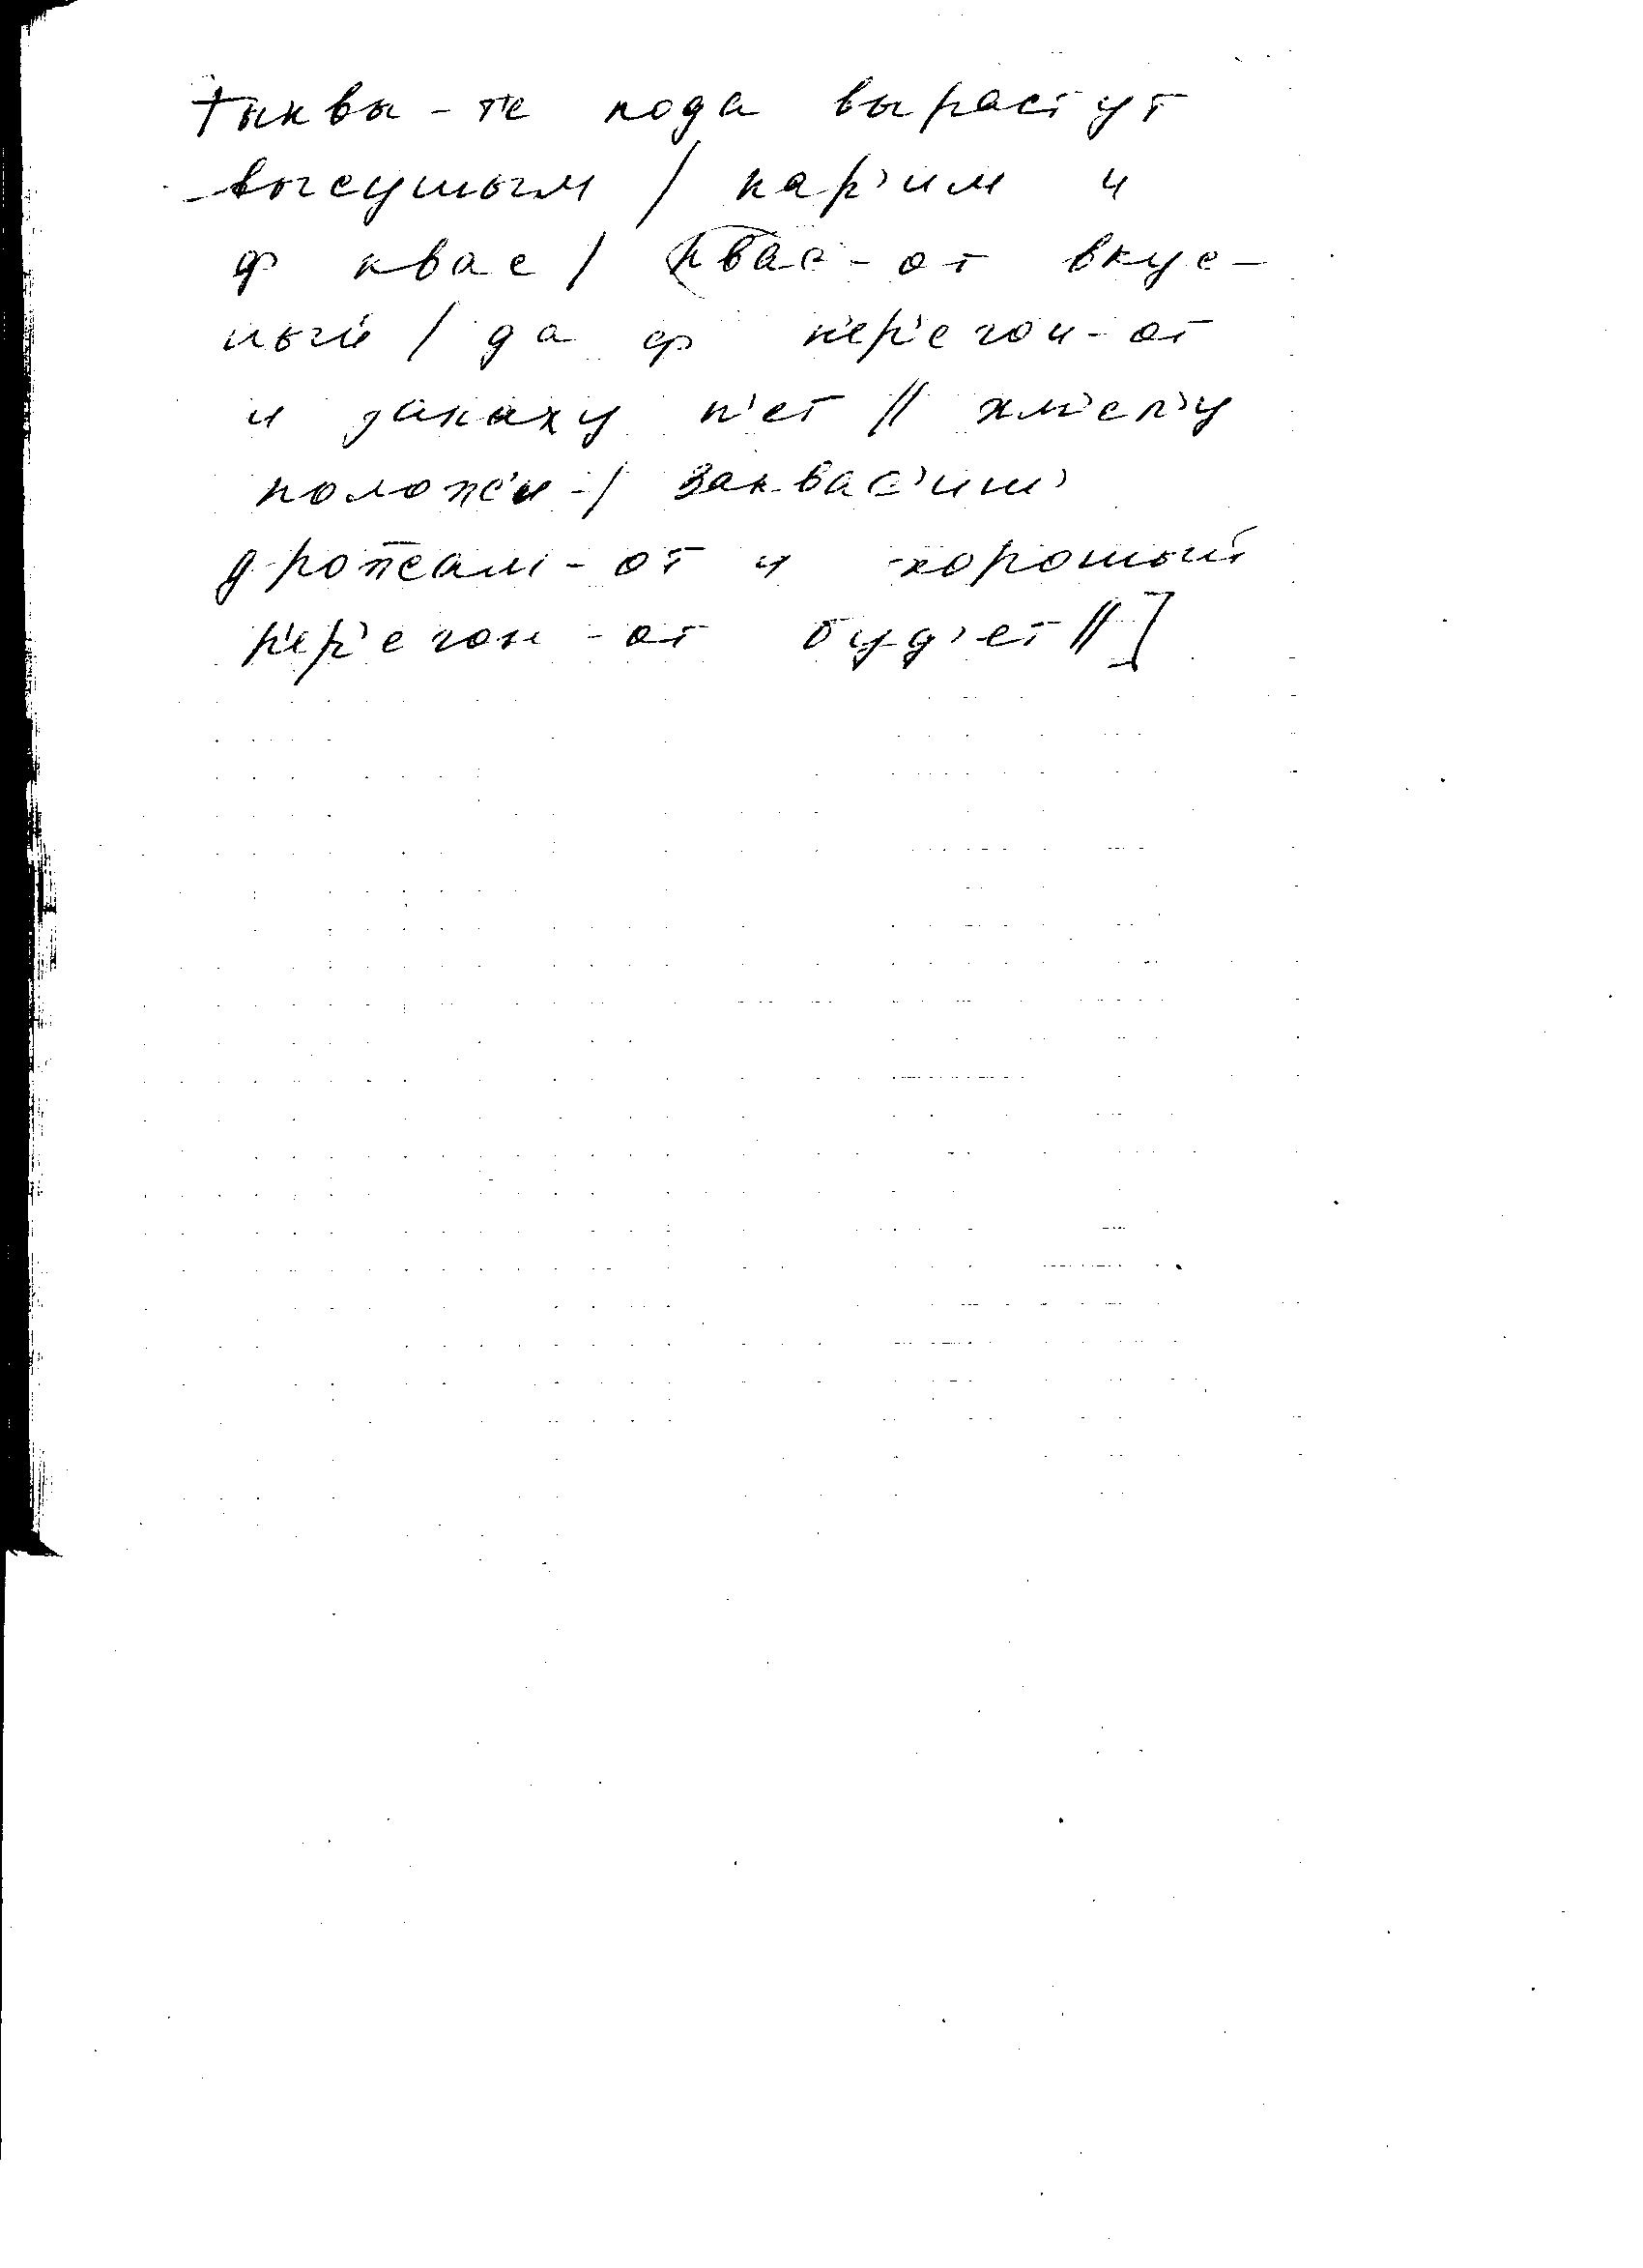 тыквы-т'е когда вырастут
высушым / пар'им и
ф квас / квас-от вкус-
ный / да ф п'ер'егон-от
и запаху н'ет // хм'ел'у
положи- / заквас'иш'
дрожжам-от и хорошый
п'ер'егон-от буд'ет // ]